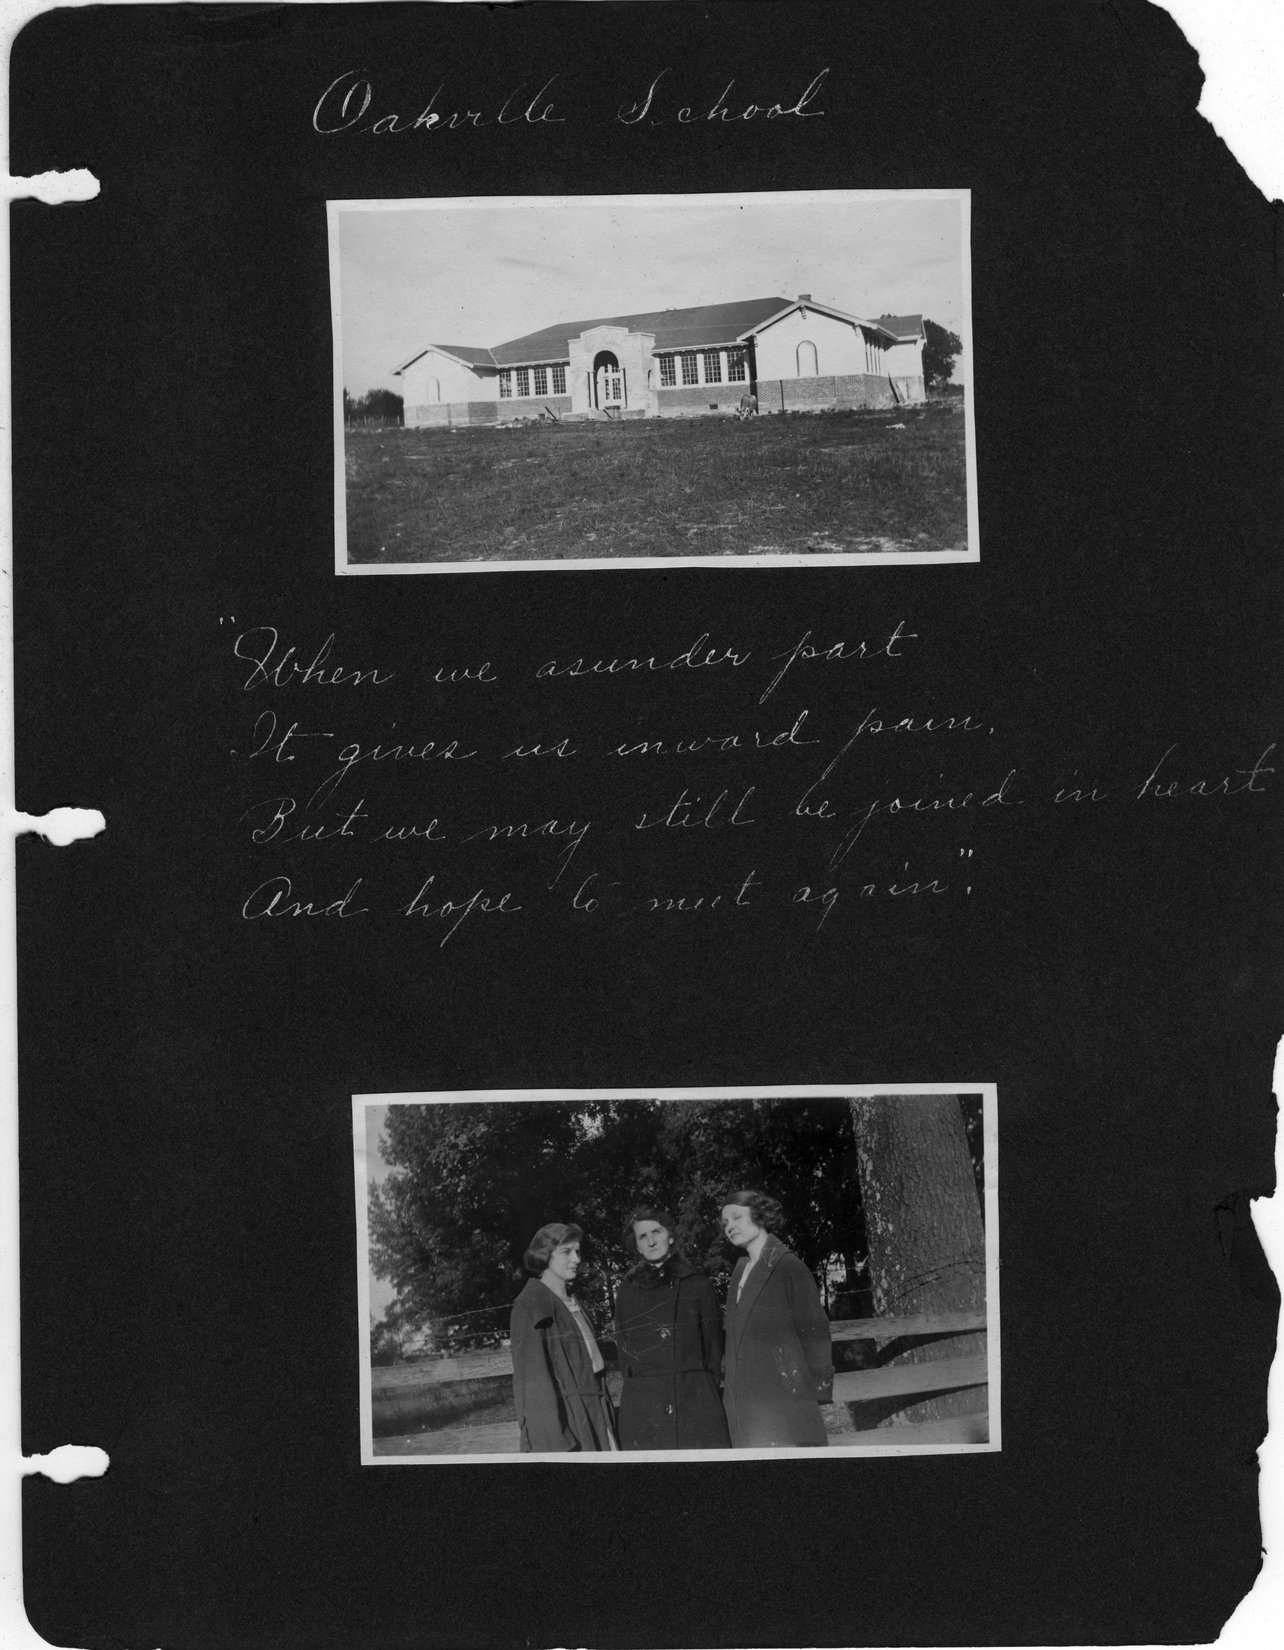 Oakville School
"When we asunder part
It gives us inward pain,
But we may still be joined in heart
And hope to meet again".